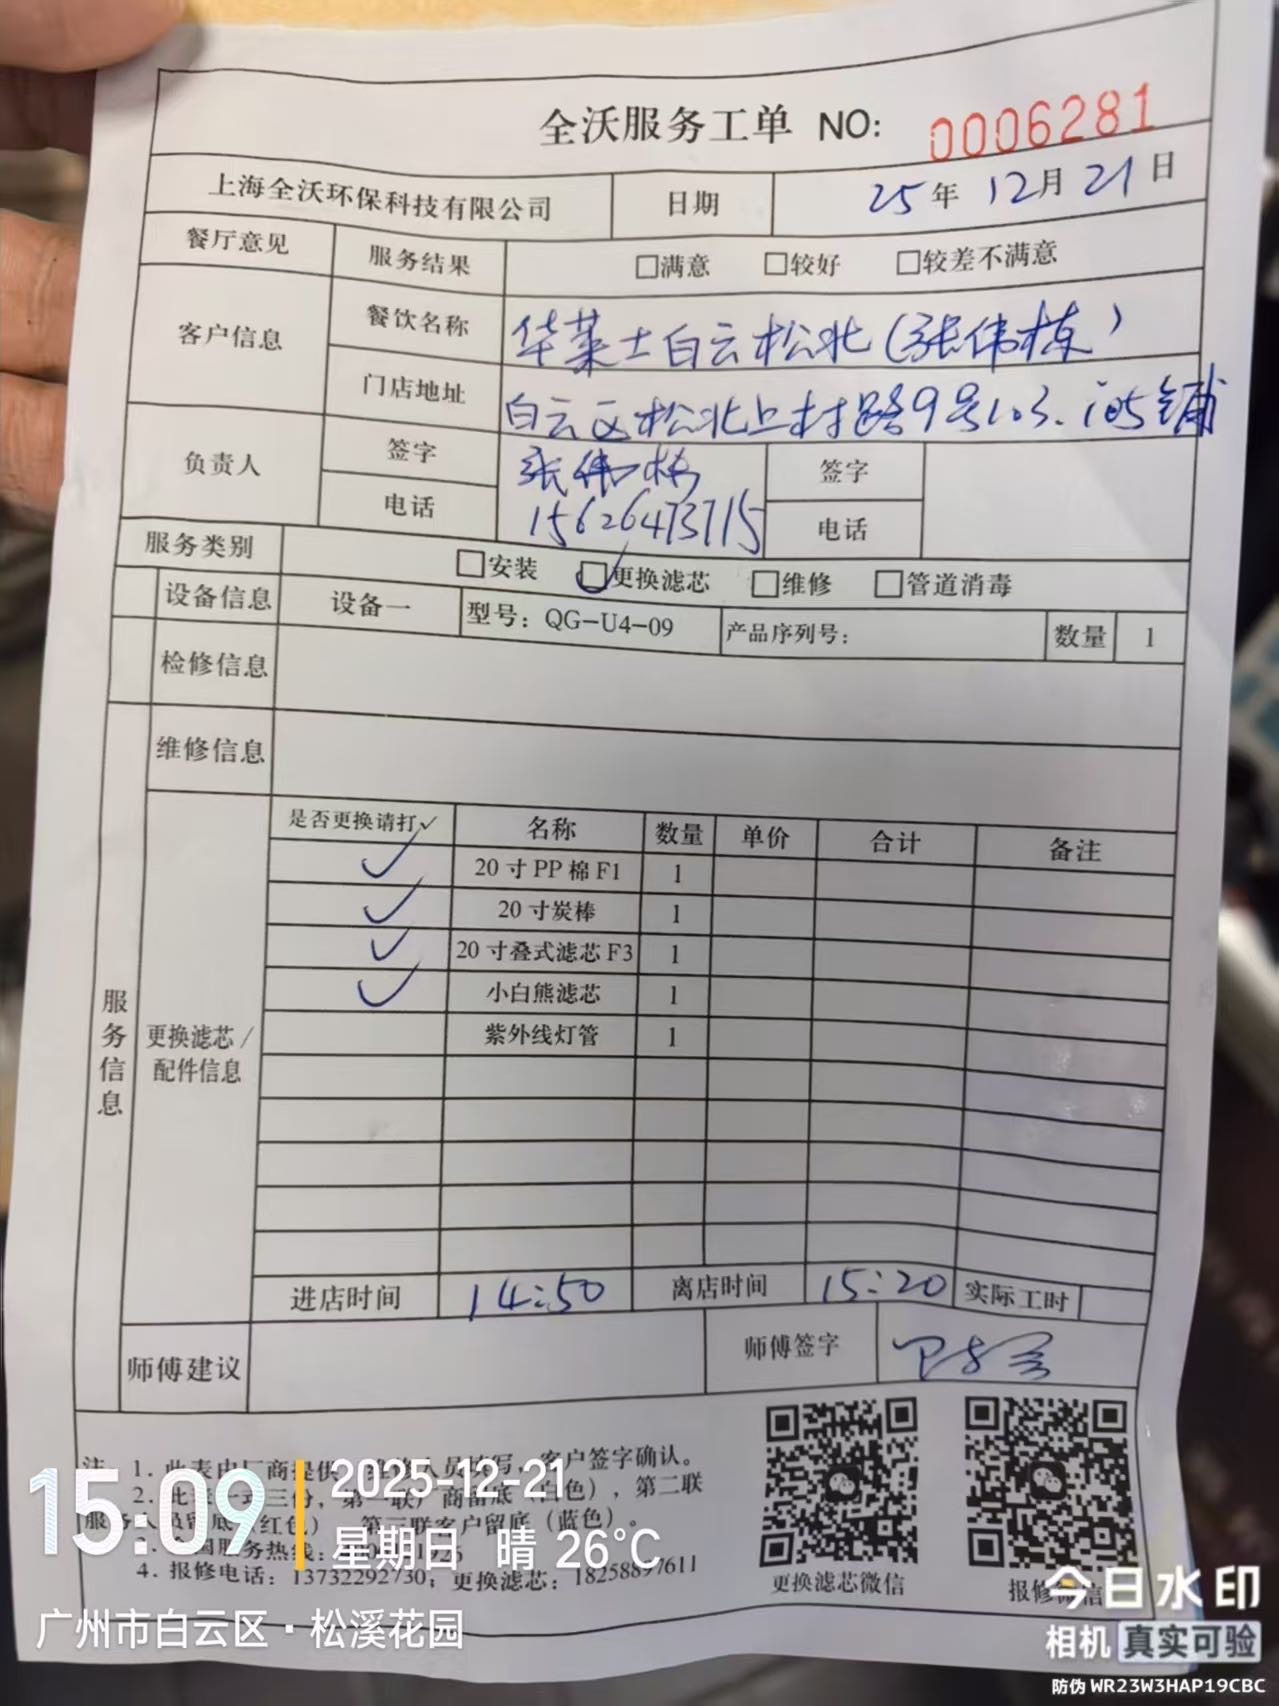 全沃服务工单 NO: 0006281
上海全沃环保科技有限公司 日期 25年 12月 21日
餐厅意见 服务结果 □满意 □较好 □较差不满意
客户信息 餐饮名称 华莱士白云松北(张伟栋)
门店地址 白云区松北上村路9号103、105铺
负责人 签字 张伟栋 签字
电话 15626473715 电话
服务类别 □安装 ☑更换滤芯 □维修 □管道消毒
设备信息 设备一 型号: QG-U4-09 产品序列号: 数量 1
检修信息
维修信息
服务信息
更换滤芯/配件信息
是否更换请打✓ 名称 数量 单价 合计 备注
✓ 20寸PP棉F1 1
✓ 20寸炭棒 1
✓ 20寸叠式滤芯F3 1
✓ 小白熊滤芯 1
紫外线灯管 1
进店时间 14:50 离店时间 15:20 实际工时
师傅建议 师傅签字
注 1. 此表由厂商提供 客户签字确认。
2. 三份,第一联厂商留底(白色),第二联
服务 员留底(红色) 第三联客户留底(蓝色)。
国服务热线:
4. 报修电话: 13732292730; 更换滤芯: 18258897611
更换滤芯微信 报修微信
15:09 2025-12-21
星期日 晴 26°C
广州市白云区·松溪花园
今日水印
相机 真实可验
防伪 WR23W3HAP19CBC